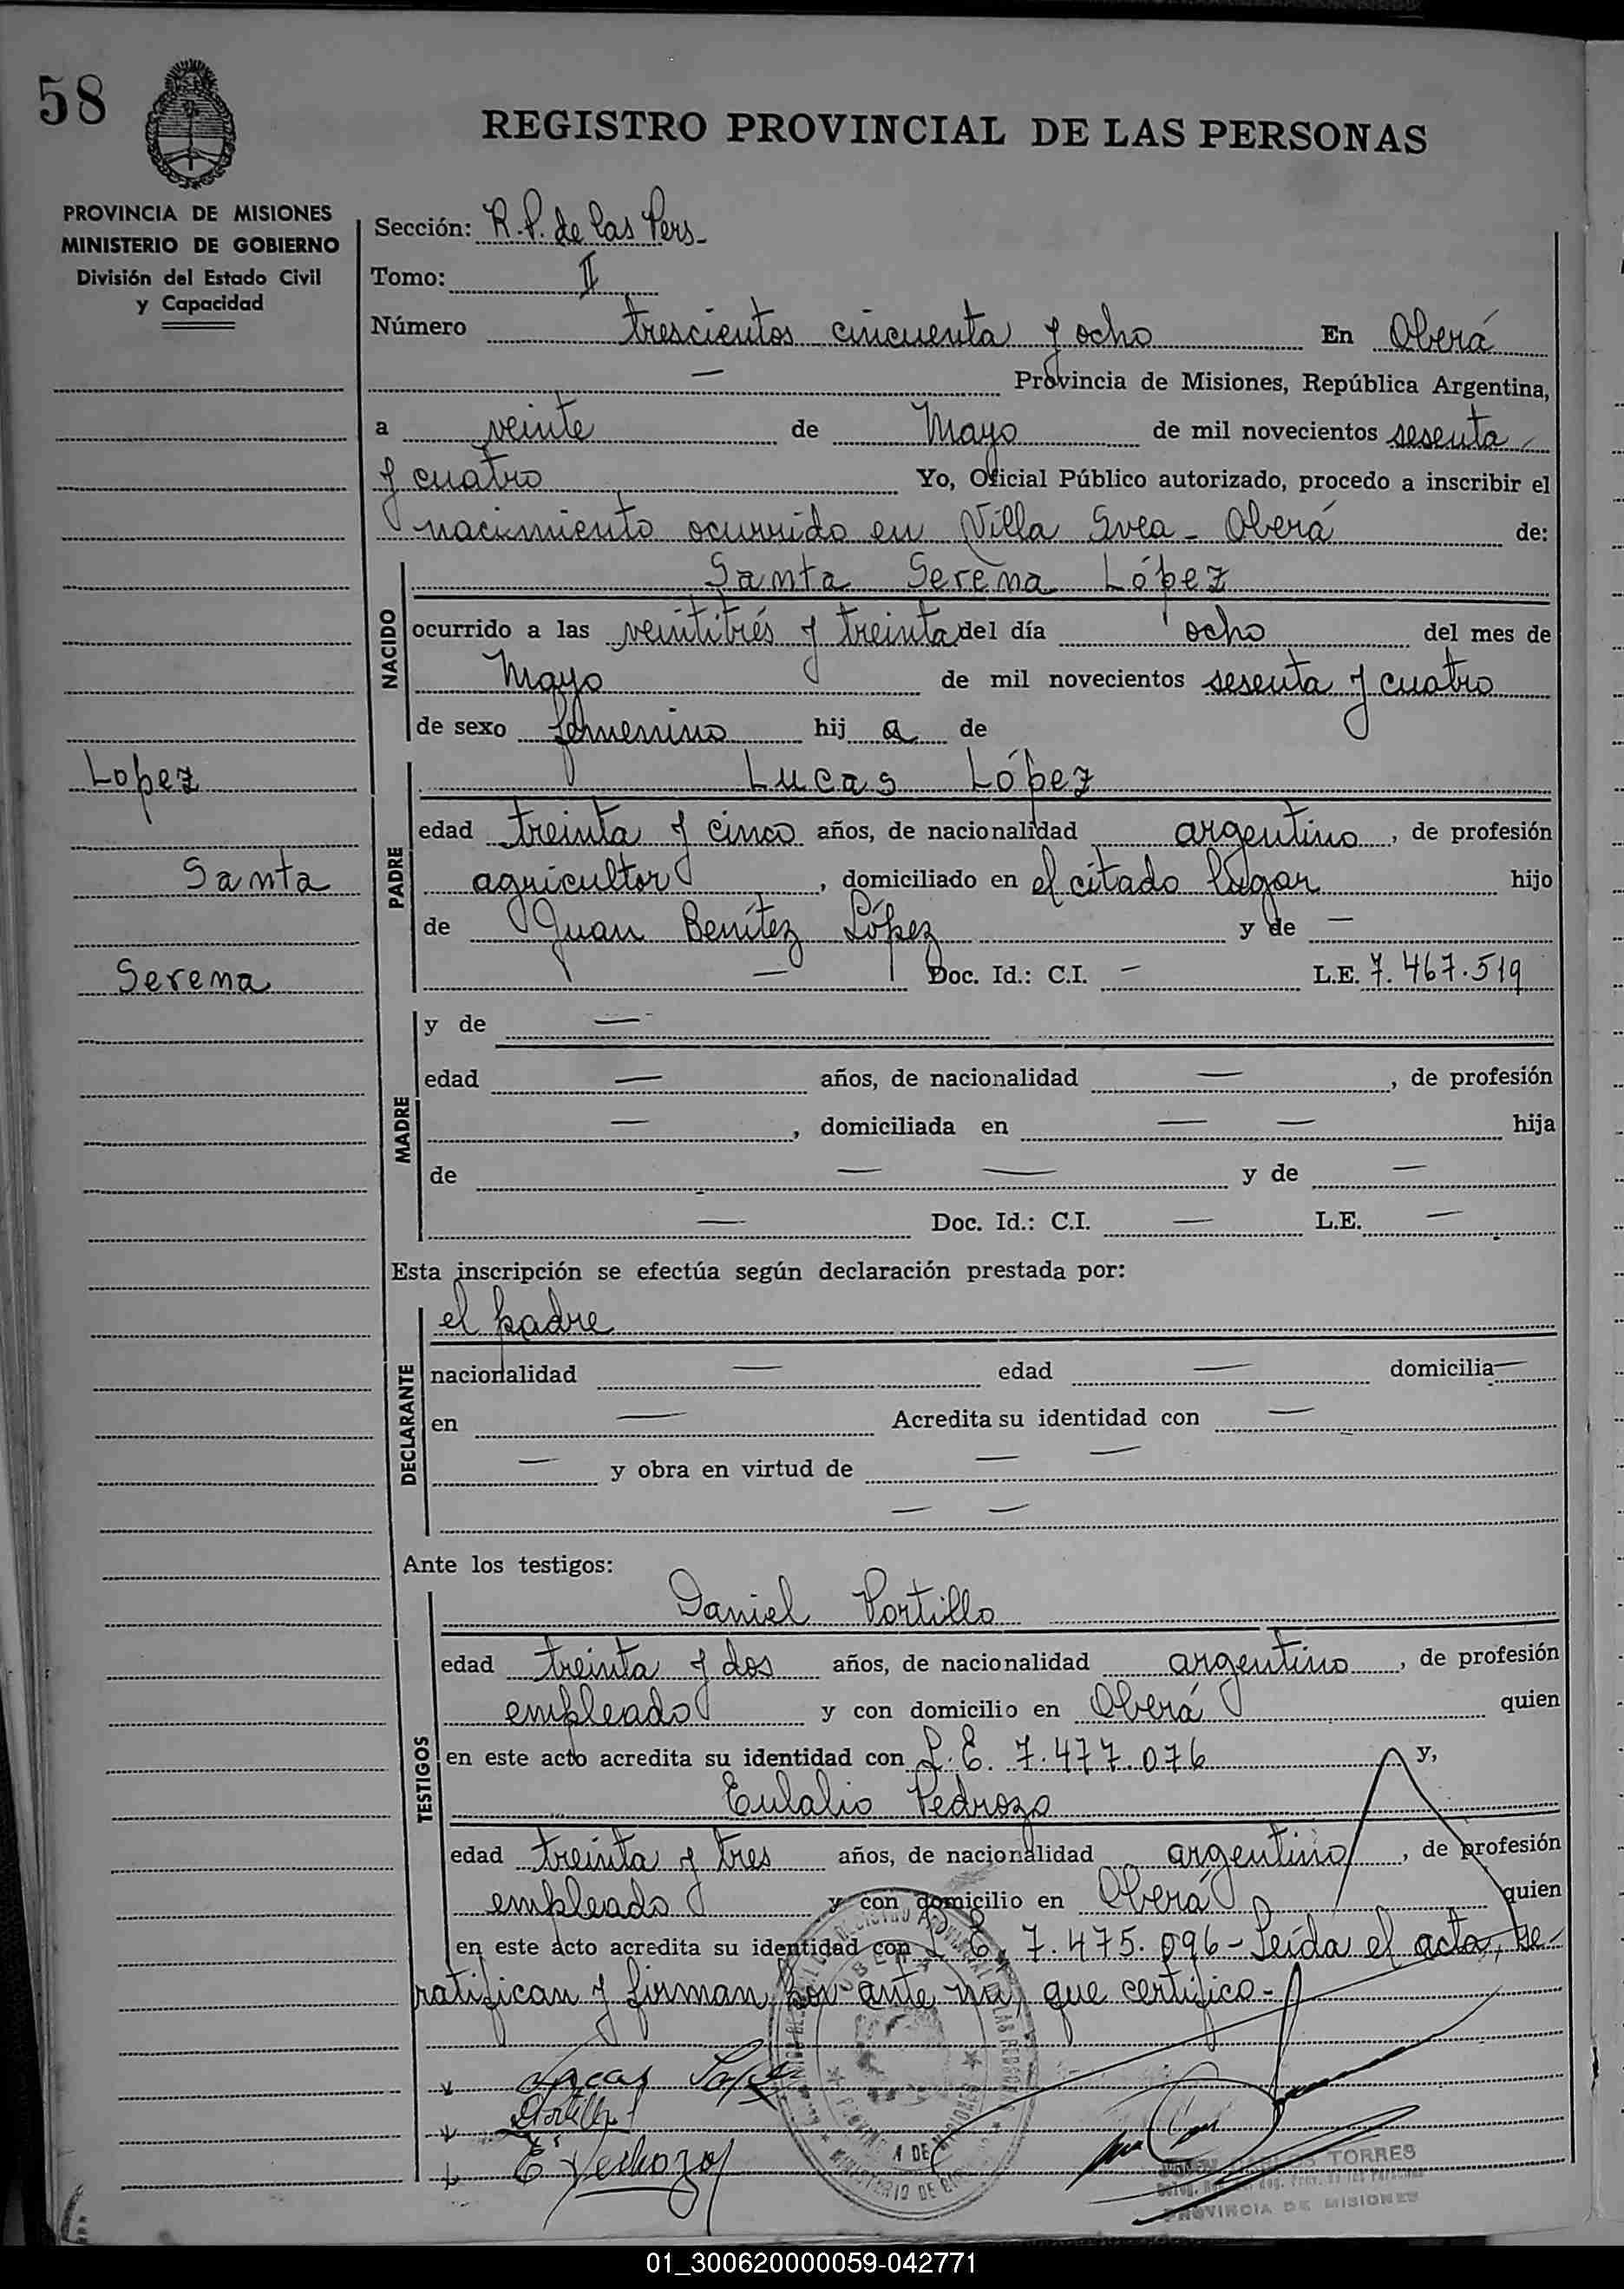 58
REGISTRO PROVINCIAL DE LAS PERSONAS
PROVINCIA DE MISIONES
MINISTERIO DE GOBIERNO
División del Estado Civil
y Capacidad
Sección: R.P. de las Pers-
Tomo: II
Número trescientos cincuenta y ocho En Oberá
— Provincia de Misiones, República Argentina,
a veinte de Mayo de mil novecientos sesenta
y cuatro Yo, Oficial Público autorizado, procedo a inscribir el
nacimiento ocurrido en Villa Svea - Oberá de:
NACIDO
Santa Serena López
ocurrido a las veintitrés y treinta del día ocho del mes de
Mayo de mil novecientos sesenta y cuatro
de sexo femenino hij a de
Lopez
Santa
Serena
PADRE
Lucas López
edad treinta y cinco años, de nacionalidad argentino, de profesión
agricultor, domiciliado en el citado lugar hijo
de Juan Benítez López y de —
— Doc. Id.: C.I. — L.E. 7.467.519
MADRE
y de —
edad — años, de nacionalidad —, de profesión
—, domiciliada en — — hija
de — — y de —
— Doc. Id.: C.I. — L.E. —
Esta inscripción se efectúa según declaración prestada por:
DECLARANTE
el padre
nacionalidad — edad — domicilia —
en — Acredita su identidad con —
— y obra en virtud de — —
— —
Ante los testigos:
TESTIGOS
Daniel Portillo
edad treinta y dos años, de nacionalidad argentino, de profesión
empleado y con domicilio en Oberá quien
en este acto acredita su identidad con L.E. 7.477.076 y,
Eulalio Pedrozo
edad treinta y tres años, de nacionalidad argentino, de profesión
empleado y con domicilio en Oberá quien
en este acto acredita su identidad con L.E. 7.475.096 - Leída el acta, se
ratifican y firman por ante mí, que certifico -
Lucas López
Portillo
E. Pedrozo
TORRES
PROVINCIA DE MISIONES
01_300620000059-042771